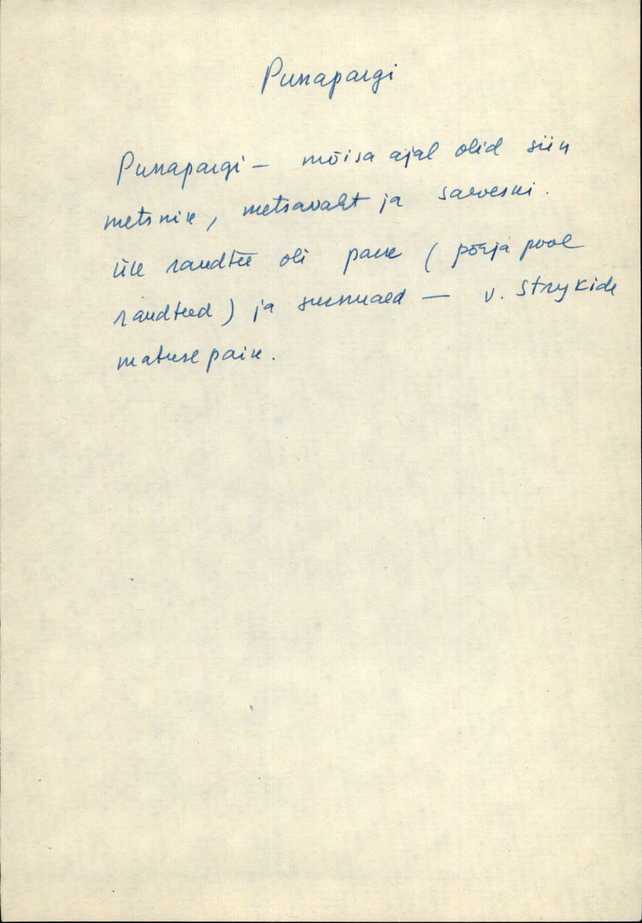 Punapargi
Punapargi – mõisa ajal olid siin
metsnik, metsavaht ja saeveski.
Üle raudtee oli park (põhja pool
raudteed) ja surnuaed – v. Strykide
matuse paik.